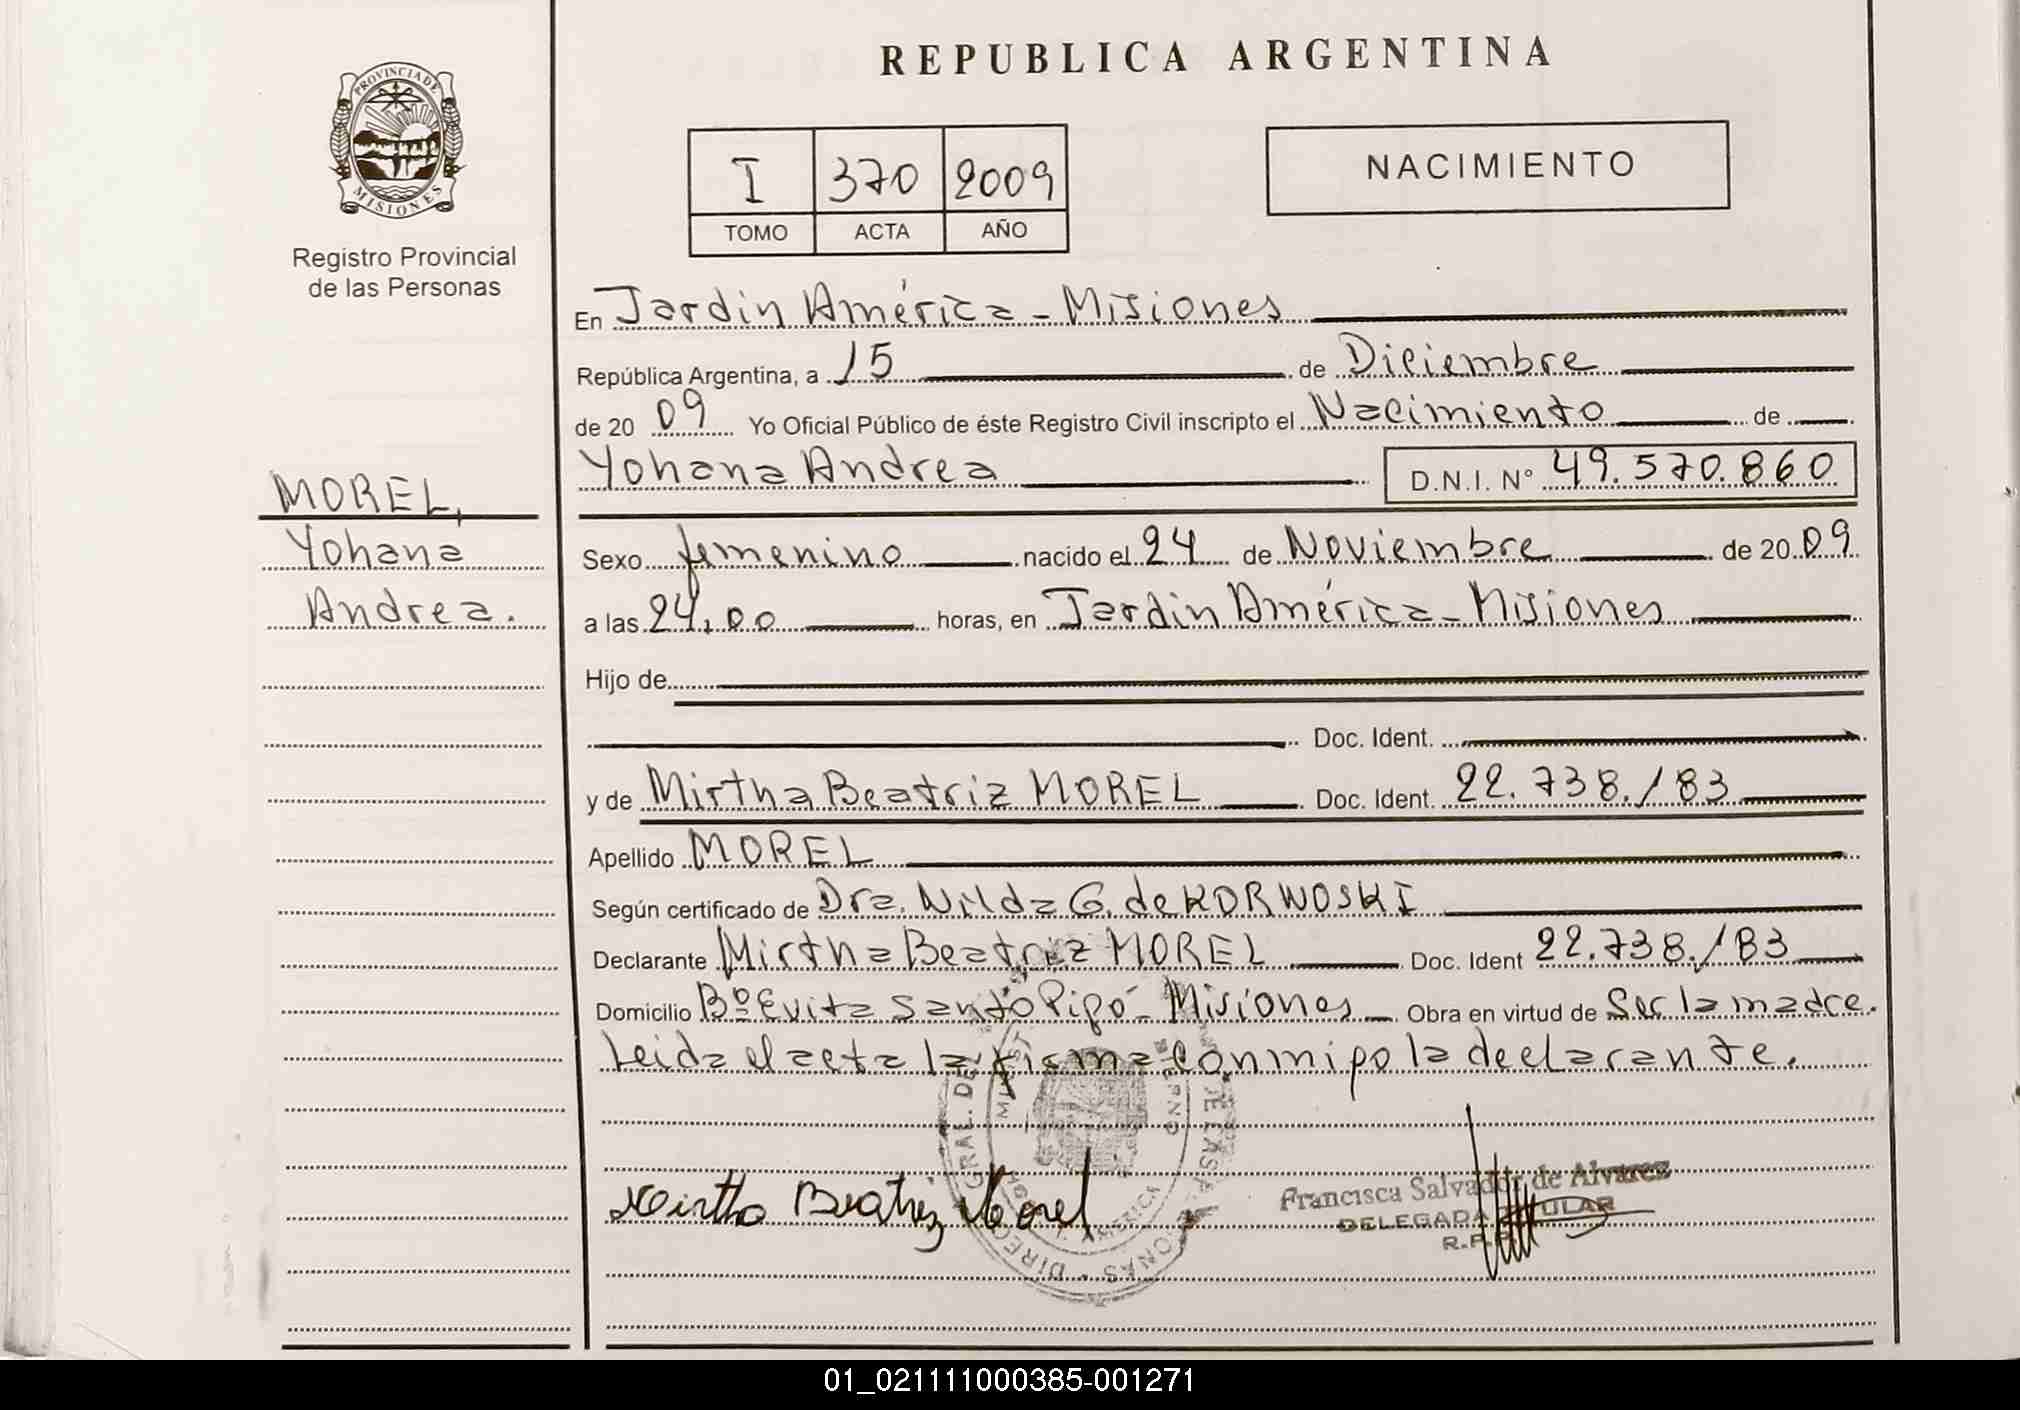 REPUBLICA ARGENTINA
PROVINCIA DE
MISIONES
Registro Provincial
de las Personas
I 370 2009
TOMO ACTA AÑO
NACIMIENTO
En Jardin América - Misiones
República Argentina, a 15 de Diciembre
de 20 09 Yo Oficial Público de éste Registro Civil inscripto el Nacimiento de
Yohana Andrea D.N.I. Nº 49.570.860
MOREL,
Yohana
Andrea.
Sexo femenino nacido el 24 de Noviembre de 20 09
a las 24,00 horas, en Jardin América - Misiones
Hijo de
Doc. Ident.
y de Mirtha Beatriz MOREL Doc. Ident. 22.738.183
Apellido MOREL
Según certificado de Dra. Nilda G. de KORWOSKI
Declarante Mirtha Beatriz MOREL Doc. Ident 22.738.183
Domicilio Bº Evita Santo Pipó - Misiones Obra en virtud de Ser la madre.
Leida el acta la firma conmigo la declarante.
Mirtha Beatriz Morel
Francisca Salvador de Alvarez
DELEGADA TITULAR
R.P.P.
01_021111000385-001271